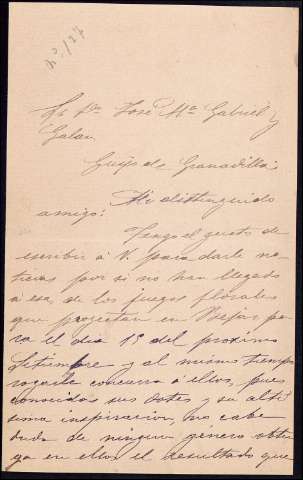 nº 127
Sr Dn José Mª Gabriel y
Galan
Guijo de Granadilla
Mi distinguido
amigo:
Tengo el gusto de
escribir á V. para darle no-
ticias por si no han llegado
a esa, de los juegos florales
que proyectan en Bejar pa-
ra el dia 15 del proximo
Setiembre y al mismo tiempo
rogarle concurra á ellos, pues
conocidas sus dotes y su alti-
sima inspiracion, no cabe
duda de ningun género obten
ga en ellos el resultado que